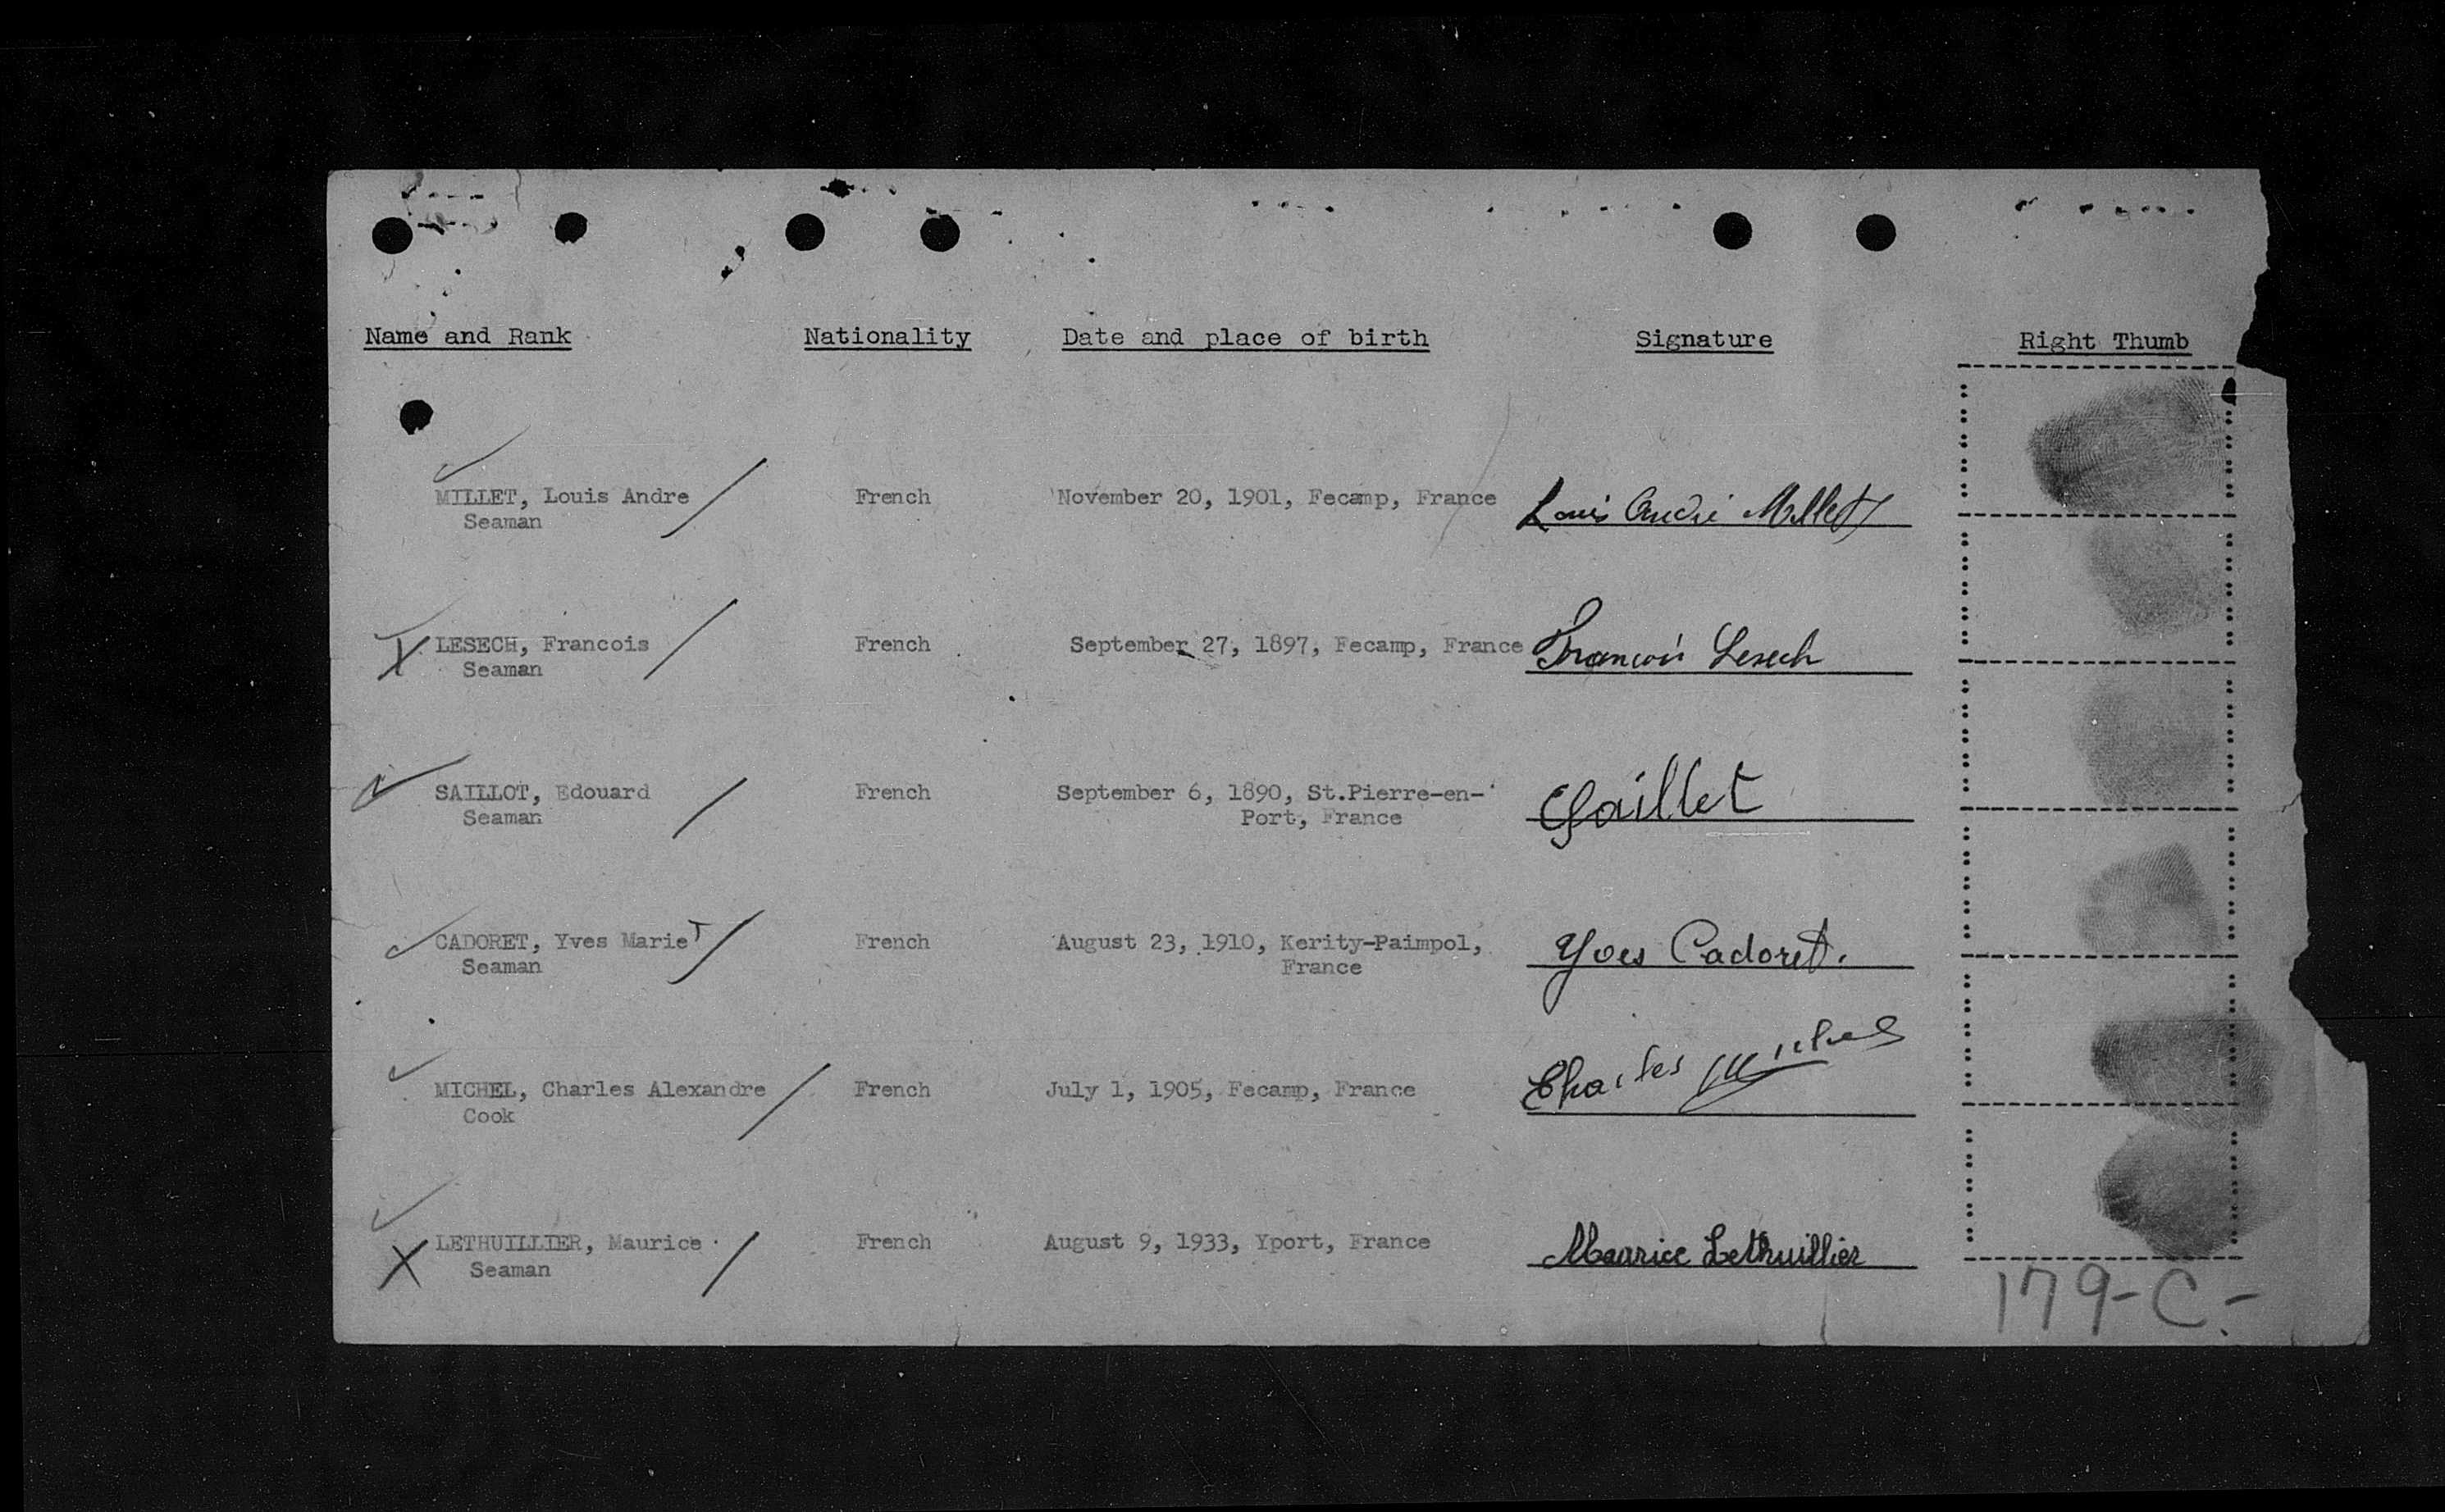 Name and Rank Nationality Date and place of birth Signature Right Thumb
MILLET, Louis Andre French November 20, 1901, Fecamp, France Louis André Millet
Seaman
X LESECH, Francois French September 27, 1897, Fecamp, France Francois Lesech
Seaman
SAILLOT, Edouard French September 6, 1890, St.Pierre-en- Saillet
Seaman Port, France
CADORET, Yves Marie T French August 23, 1910, Kerity-Paimpol, Yves Cadoret.
Seaman France
MICHEL, Charles Alexandre French July 1, 1905, Fecamp, France Charles Michel
Cook
X LETHUILLIER, Maurice French August 9, 1933, Yport, France Maurice Lethuillier
Seaman
179-C.-